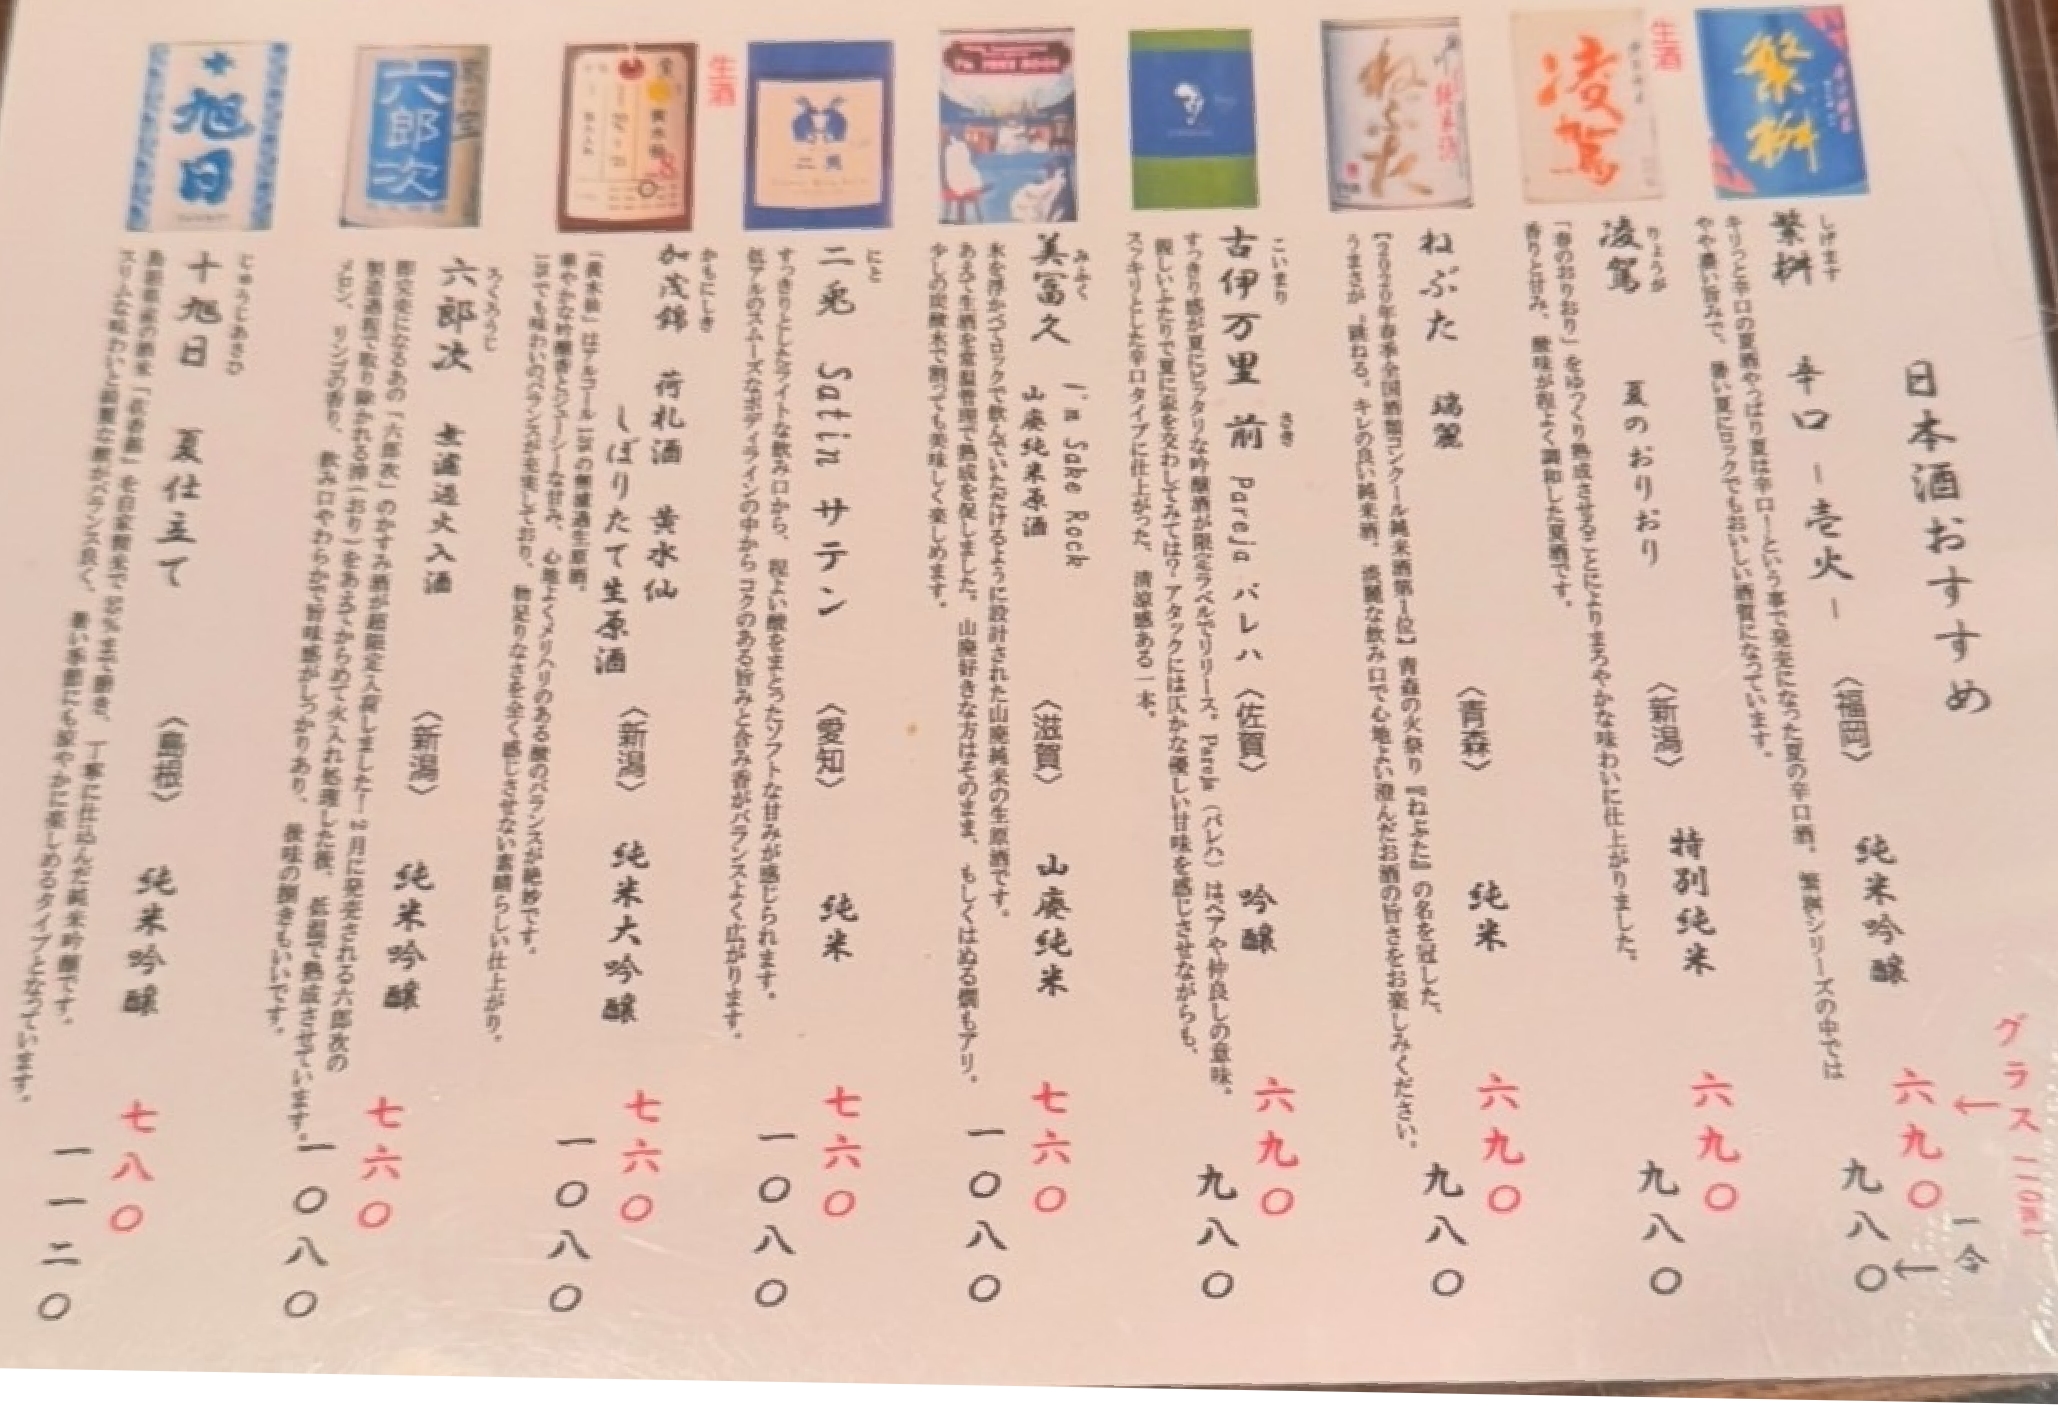 日本酒おすすめ
グラス
一合
生酒
しげます
繁桝 辛口 ー壱火ー 〈福岡〉 純米吟醸 六九〇 九八〇
キリっと辛口の夏酒やっぱり夏は辛口ーという事で発売になった夏の辛口酒。繁桝シリーズの中では
やや濃い旨みで、暑い夏にロックでもおいしい酒質になっています。
りょうが
凌駕 夏のおりおり 〈新潟〉 特別純米 六九〇 九八〇
「春のおりおり」をゆっくり熟成させることによりまろやかな味わいに仕上がりました。
香りと甘み、酸味が程よく調和した夏酒です。
ねぶた 瑞麗 〈青森〉 純米 六九〇 九八〇
【2020年春季全国酒類コンクール純米酒第1位】青森の火祭り『ねぶた』の名を冠した、
うまさが“跳ねる。キレの良い純米酒。淡麗な飲み口で心地よい澄んだお酒の旨さをお楽しみください。
こいまり さき
古伊万里 前 Pareja パレハ 〈佐賀〉 吟醸 六九〇 九八〇
すっきり感が夏にピッタリな吟醸酒が限定ラベルでリリース。Pareja（パレハ）はペアや仲良しの意味。
親しいふたりで夏に盃を交わしてみては？アタックには仄かな優しい甘味を感じさせながらも、
スッキリとした辛口タイプに仕上がった、清涼感ある一本。
みふく
美冨久 I'm Sake Rock 山廃純米原酒 〈滋賀〉 山廃純米 七六〇 一〇八〇
氷を浮かべてロックで飲んでいただけるように設計された山廃純米の生原酒です。
あえて生酒を常温管理で熟成を促しました。山廃好きな方はそのまま、もしくはぬる燗もアリ。
少しの炭酸水で割っても美味しく楽しめます。
にと
二兎 Satin サテン 〈愛知〉 純米 七六〇 一〇八〇
すっきりとしたライトな飲み口から、程よい酸をまとったソフトな甘みが感じられます。
低アルのスムーズなボディラインの中からコクのある旨みと含み香がバランスよく広がります。
生酒
かもにしき
加茂錦 荷札酒 黄水仙 しぼりたて生原酒 〈新潟〉 純米大吟醸 七六〇 一〇八〇
「黄水仙」はアルコール13%の無濾過生原酒。
華やかな吟醸香とジューシーな甘み、心地よくメリハリのある酸のバランスが絶妙です。
13%でも味わいのバランスが充実しており、物足りなさを全く感じさせない素晴らしい仕上がり。
ろくろうじ
六郎次 無濾過火入酒 〈新潟〉 純米吟醸 七六〇 一〇八〇
即完売になるあの「六郎次」のかすみ酒が超限定入荷しました！12月に発売される六郎次の
製造過程で取り除かれる滓（おり）をあえてからめて火入れ処理した後、低温で熟成させています。
メロン、リンゴの香り、飲み口やわらかで旨味感がしっかりあり、後味の捌きもいいです。
じゅうじあさひ
十旭日 夏仕立て 〈島根〉 純米吟醸 七八〇 一一二〇
島根県産の酒米「佐香錦」を自家精米で55%まで磨き、丁寧に仕込んだ純米吟醸です。
スリムな味わいと綺麗な酸がバランス良く、暑い季節にも爽やかに楽しめるタイプとなっています。